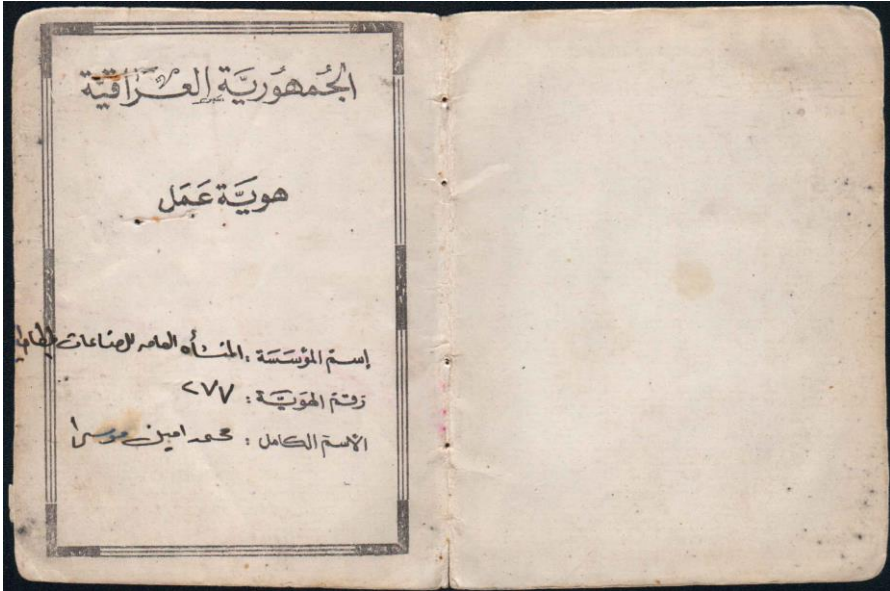 الجُمهُوريَّة العِرَاقيَّة
هويَّة عَمَل
إسم المؤسَسَة : المنشأه العامه للصناعات
رقم الهَويَّة : ٢٧٧
الاسم الكامل : محمد امين